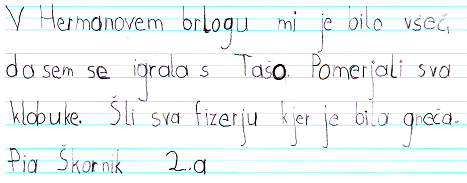 V Hermanovem brlogu mi je bilo všeč,
da sem se igrala s Tašo. Pomerjali sva
klobuke. Šli sva fizerju kjer je bila gneča.
Pia Škornik 2.a